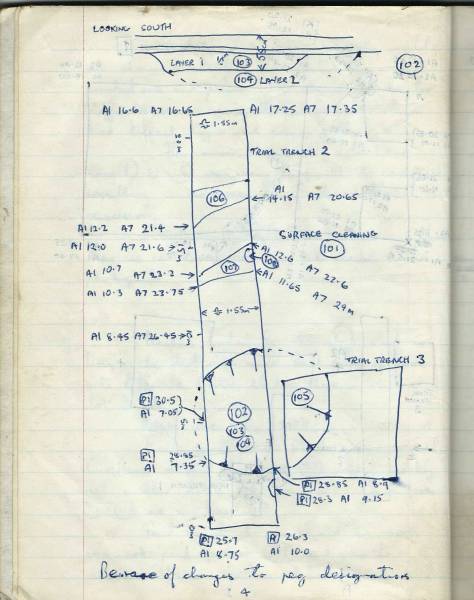 LOOKING SOUTH
LAYER 1 103
104 LAYER 2
102
A1 16.6 A7 16.65
A1 17.25 A7 17.35
1.55m
TRIAL TRENCH 2
106
A1
14.15 A7 20.65
A1 12.2 A7 21.4
A1 12.0 A7 21.6
SURFACE CLEANING
101
107
108
A1 12.6
A7 22.6
A1 10.7 A7 23.2
A1 11.65
A7 24m
A1 10.3 A7 23.75
1.55m
A1 8.45 A7 26.45
TRIAL TRENCH 3
105
P1 30.5
A1 7.05
102
103
104
P1 28.85
A1 7.35
P1 28.85 A1 8.9
P1 28.3 A1 9.15
P1 25.7
A1 8.75
26.3
A1 10.0
Beware of changes to peg designations
4